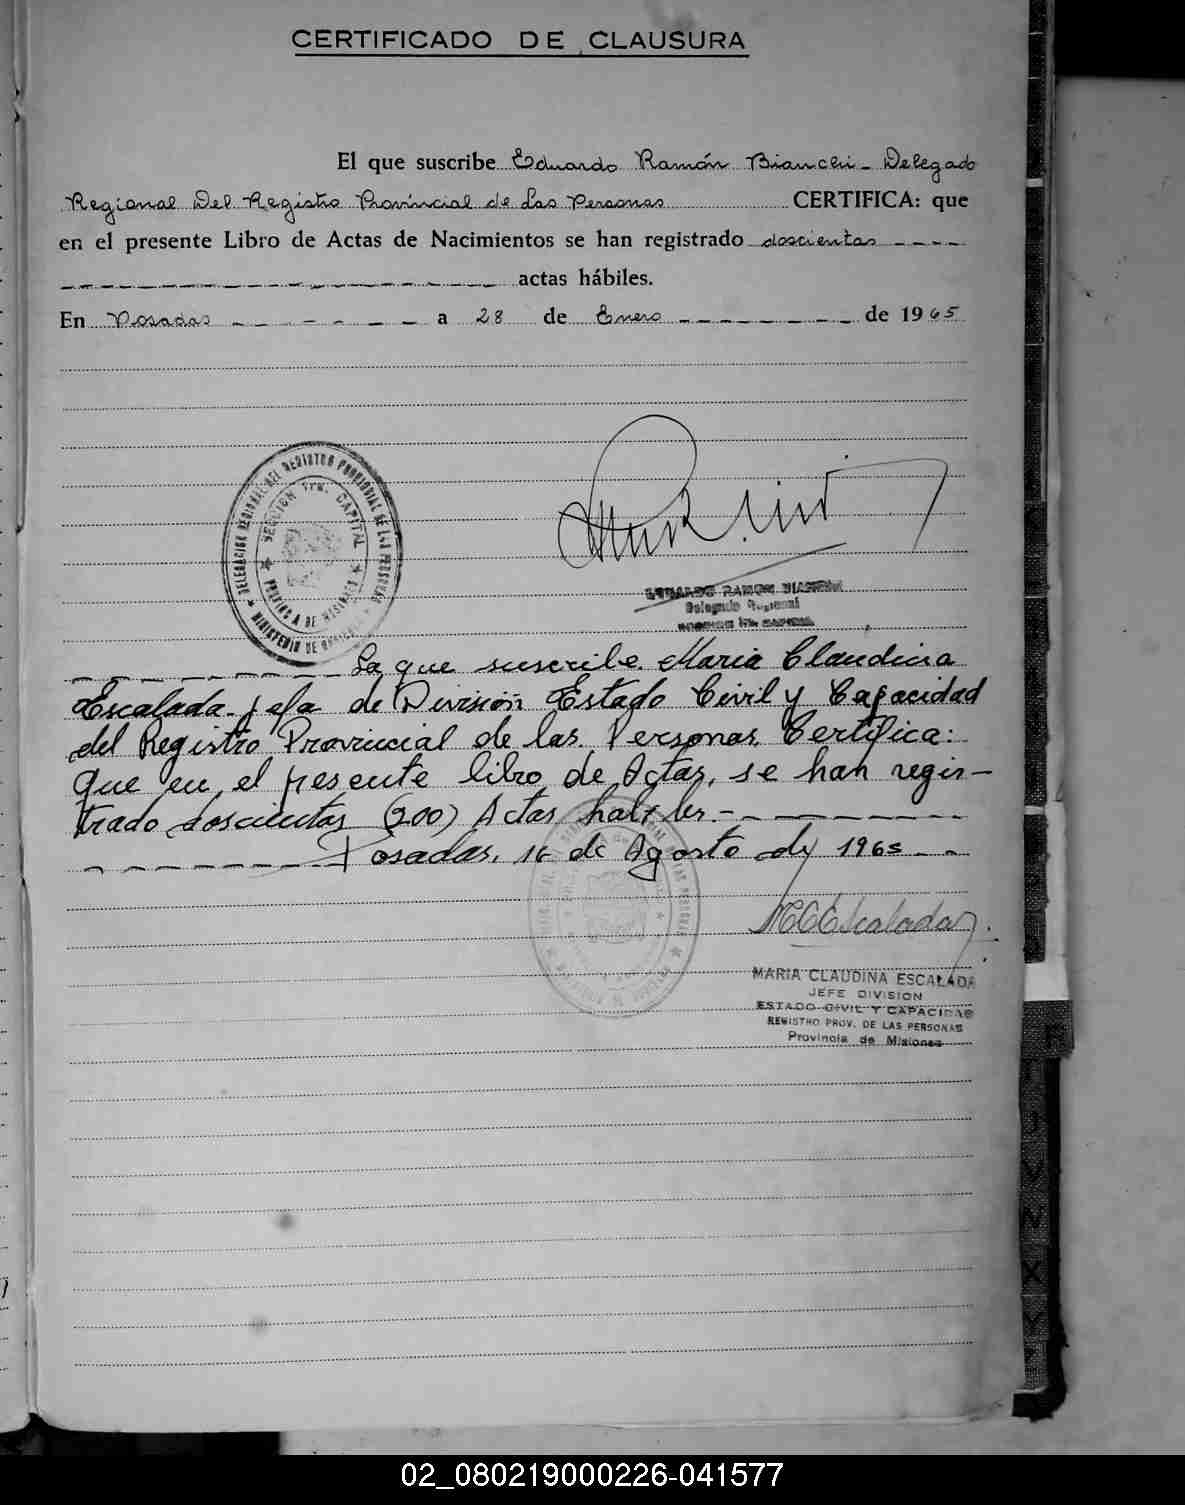 CERTIFICADO DE CLAUSURA
El que suscribe Eduardo Ramón Bianchi - Delegado
Regional Del Registro Provincial de Las Personas CERTIFICA: que
en el presente Libro de Actas de Nacimientos se han registrado doscientas ----
actas hábiles.
En Posadas a 28 de Enero de 1965
DELEGACION REGIONAL DEL REGISTRO PROVINCIAL DE LAS PERSONAS
SECCION 1ra. CAPITAL
PROVINCIA DE MISIONES
MINISTERIO DE
EDUARDO RAMON BIANCHI
Delegado Regional
La que suscribe Maria Claudina
Escalada - Jefa de División Estado Civil y Capacidad
del Registro Provincial de las Personas, Certifica:
que en el presente libro de Actas, se han regis-
trado doscientas (200) Actas habiles -
Posadas, 16 de Agosto de 1965 --
MCEscalada
MARIA CLAUDINA ESCALADA
JEFE DIVISION
ESTADO CIVIL Y CAPACIDAD
REGISTRO PROV. DE LAS PERSONAS
Provincia de Misiones
R
T
U
V
W
X
Y
02_080219000226-041577